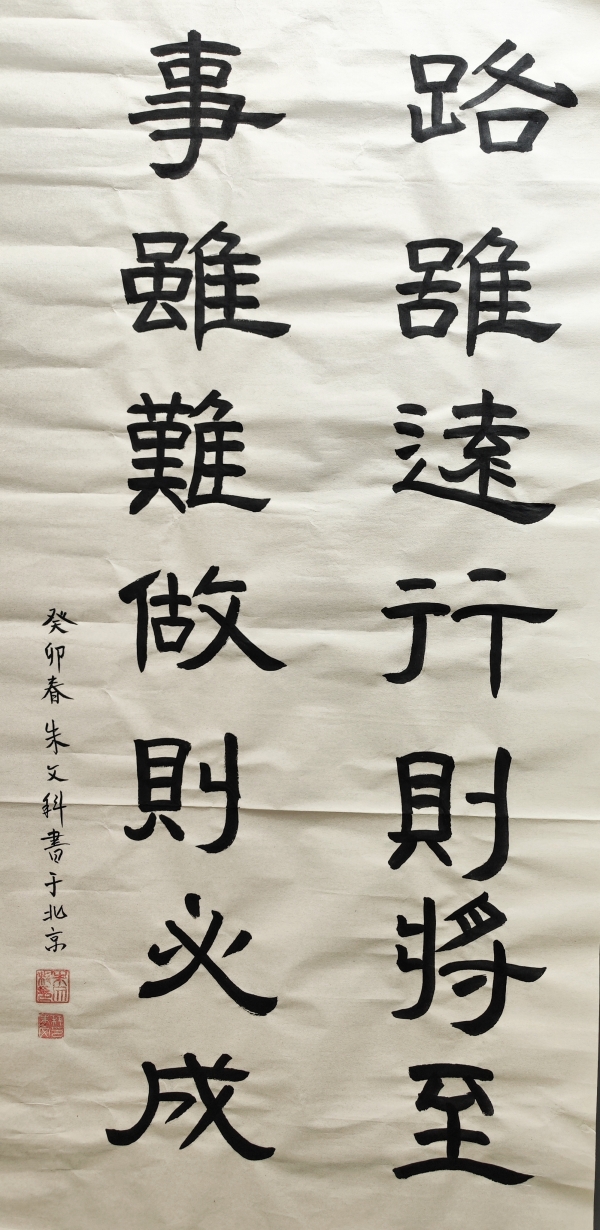 路雖遠行則將至
事雖難做則必成
癸卯春 朱文科書于北京